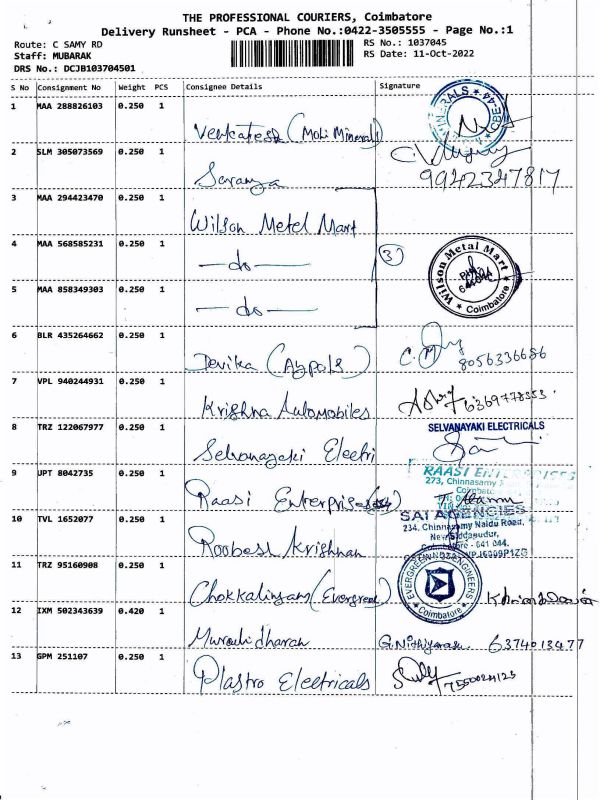 THE PROFESSIONAL COURIERS, Coimbatore
Delivery Runsheet - PCA - Phone No.:0422-3505555 - Page No.:1
Route: C SAMY RD
Staff: MUBARAK
DRS No.: DCJB103704501
RS No.: 1037045
RS Date: 11-Oct-2022
S No Consignment No Weight PCS Consignee Details Signature
1 MAA 288826103 0.250 1
Venkatesh (Mobi Minerals)
2 SLM 305073569 0.250 1
Saranya
9942347817
3 MAA 294423470 0.250 1
Wilson Metel Mart
4 MAA 568585231 0.250 1
—do— (3)
Wilson Metal Mart
Coimbatore
5 MAA 858349303 0.250 1
—do—
6 BLR 435264662 0.250 1
Devika (Aypols) 8056336686
7 VPL 940244931 0.250 1
Krishna Automobiles 6369778553
8 TRZ 122067977 0.250 1
SELVANAYAKI ELECTRICALS
Selvanayaki Electri
9 JPT 8042735 0.250 1
RAASI ENTERPRISES
273, Chinnasamy
Raasi Enterprises
10 TVL 1652077 0.250 1
SAI AGENCIES
234, Chinnasamy Naidu Road,
New Siddapudur,
Coimbatore - 641 044.
Roobesh Krishnan
11 TRZ 95160908 0.250 1
EVERGREEN ENGINEERS
Coimbatore
Chokkalingam (Evergreen)
12 IXM 502343639 0.420 1
Muralidharan G. Nithiyaraj 6374013477
13 GPM 251107 0.250 1
Plastro Electricals